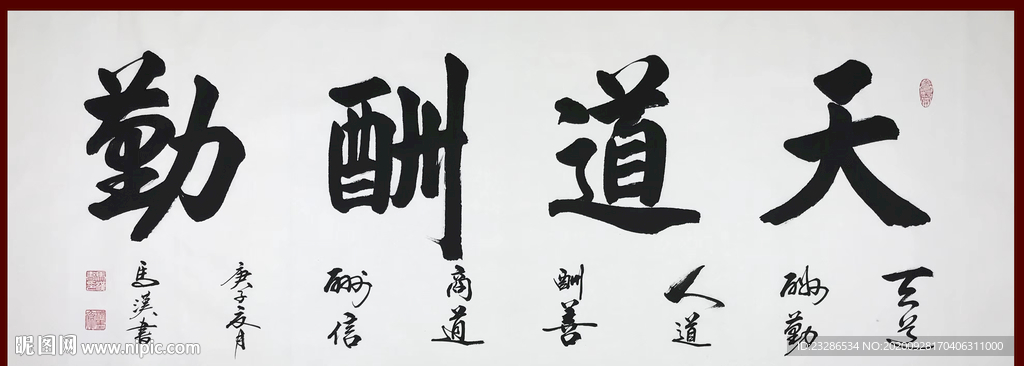 天道酬勤
天道
酬勤
人道
酬善
商道
酬信
庚子夏月
馬漢書
昵图网 www.nipic.com
ID:23286534 NO:20200928170406311000